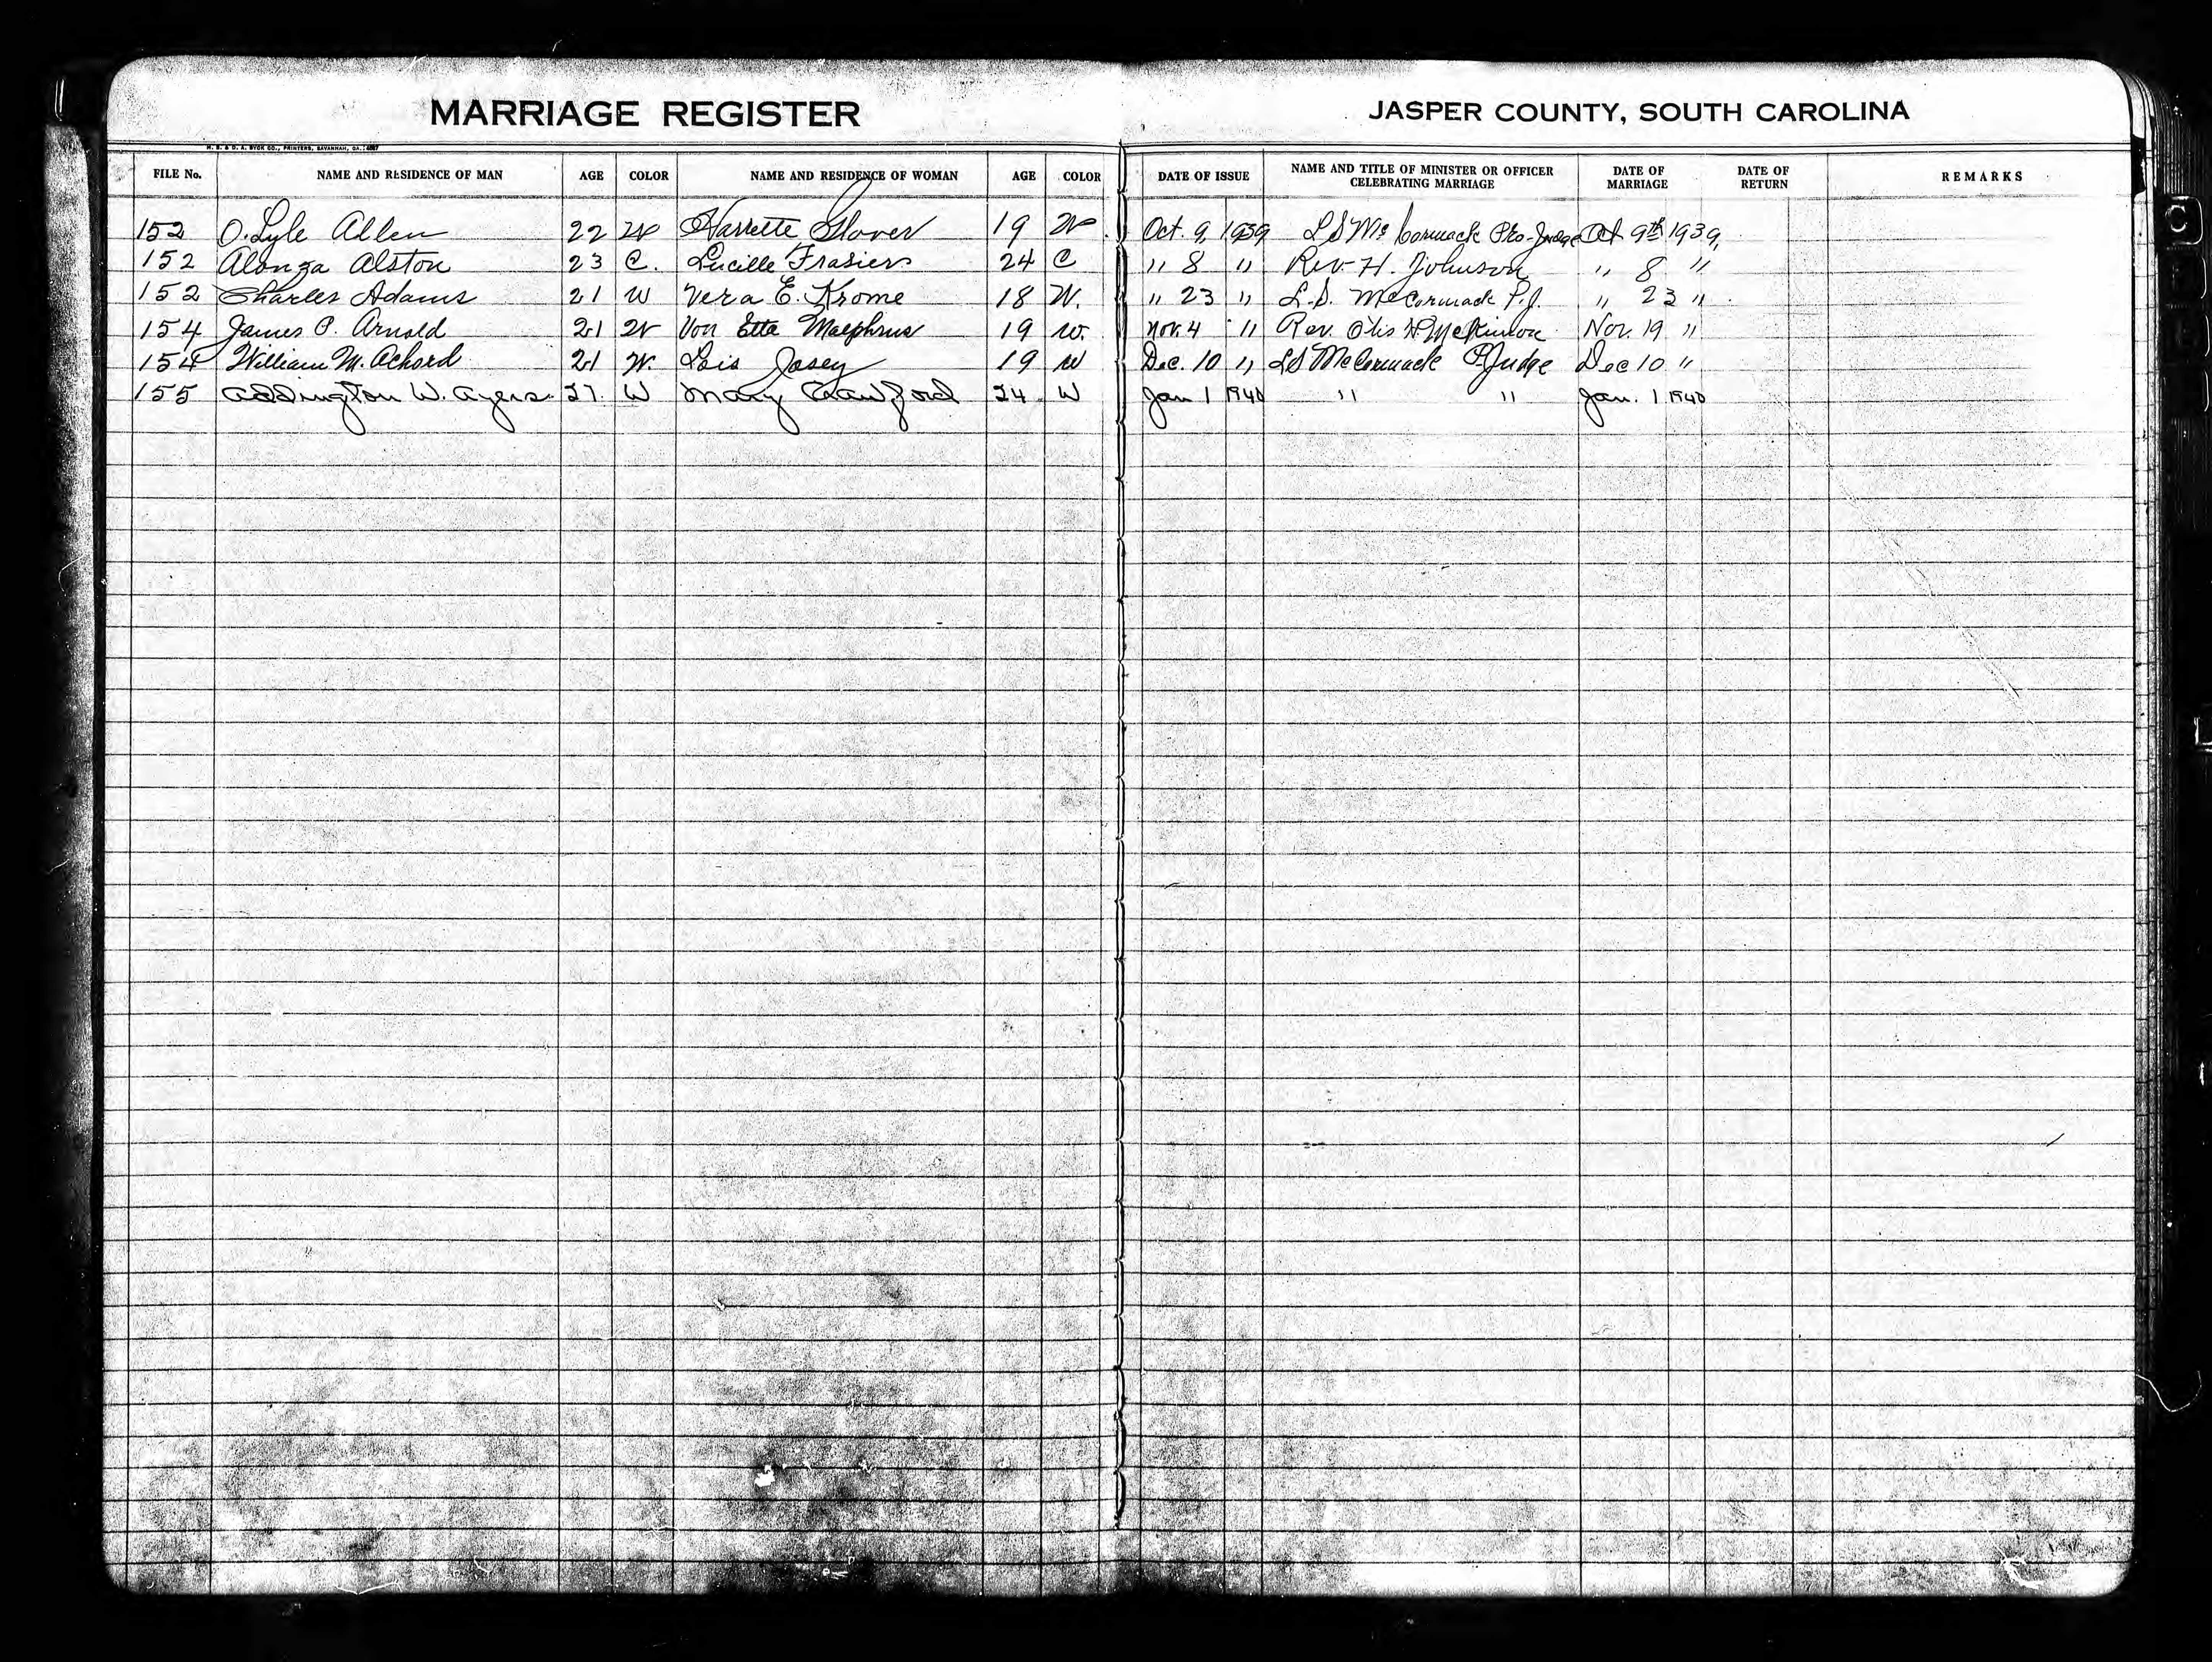 MARRIAGE REGISTER JASPER COUNTY, SOUTH CAROLINA
M. S. & D. A. BYCK CO., PRINTERS, SAVANNAH, GA.
FILE No. NAME AND RESIDENCE OF MAN AGE COLOR NAME AND RESIDENCE OF WOMAN AGE COLOR DATE OF ISSUE NAME AND TITLE OF MINISTER OR OFFICER CELEBRATING MARRIAGE DATE OF MARRIAGE DATE OF RETURN REMARKS
152 O. Lyle Allen 22 W Harrette Glover 19 W Oct. 9, 1939 L S McCormack Pro-Judge Oct 9th 1939
152 Alonza Alston 23 C. Lucille Frasier 24 C " 8 " Rev. H. Johnson " 8 "
152 Charles Adams 21 W Vera E. Krome 18 W. " 23 " L.S. McCormack P.J. " 23 "
154 James P. Arnold 21 W Von Etta Malphrus 19 W. Nov. 4 " Rev. Otis W McKinnon Nov. 19 "
154 William M. Achord 21 W. Lois Josey 19 W Dec. 10 " LS McCormack P.Judge Dec 10 "
155 Addington W. Ayers 27 W Mary Crawford 24 W Jan 1 1940 " " Jan. 1 1940